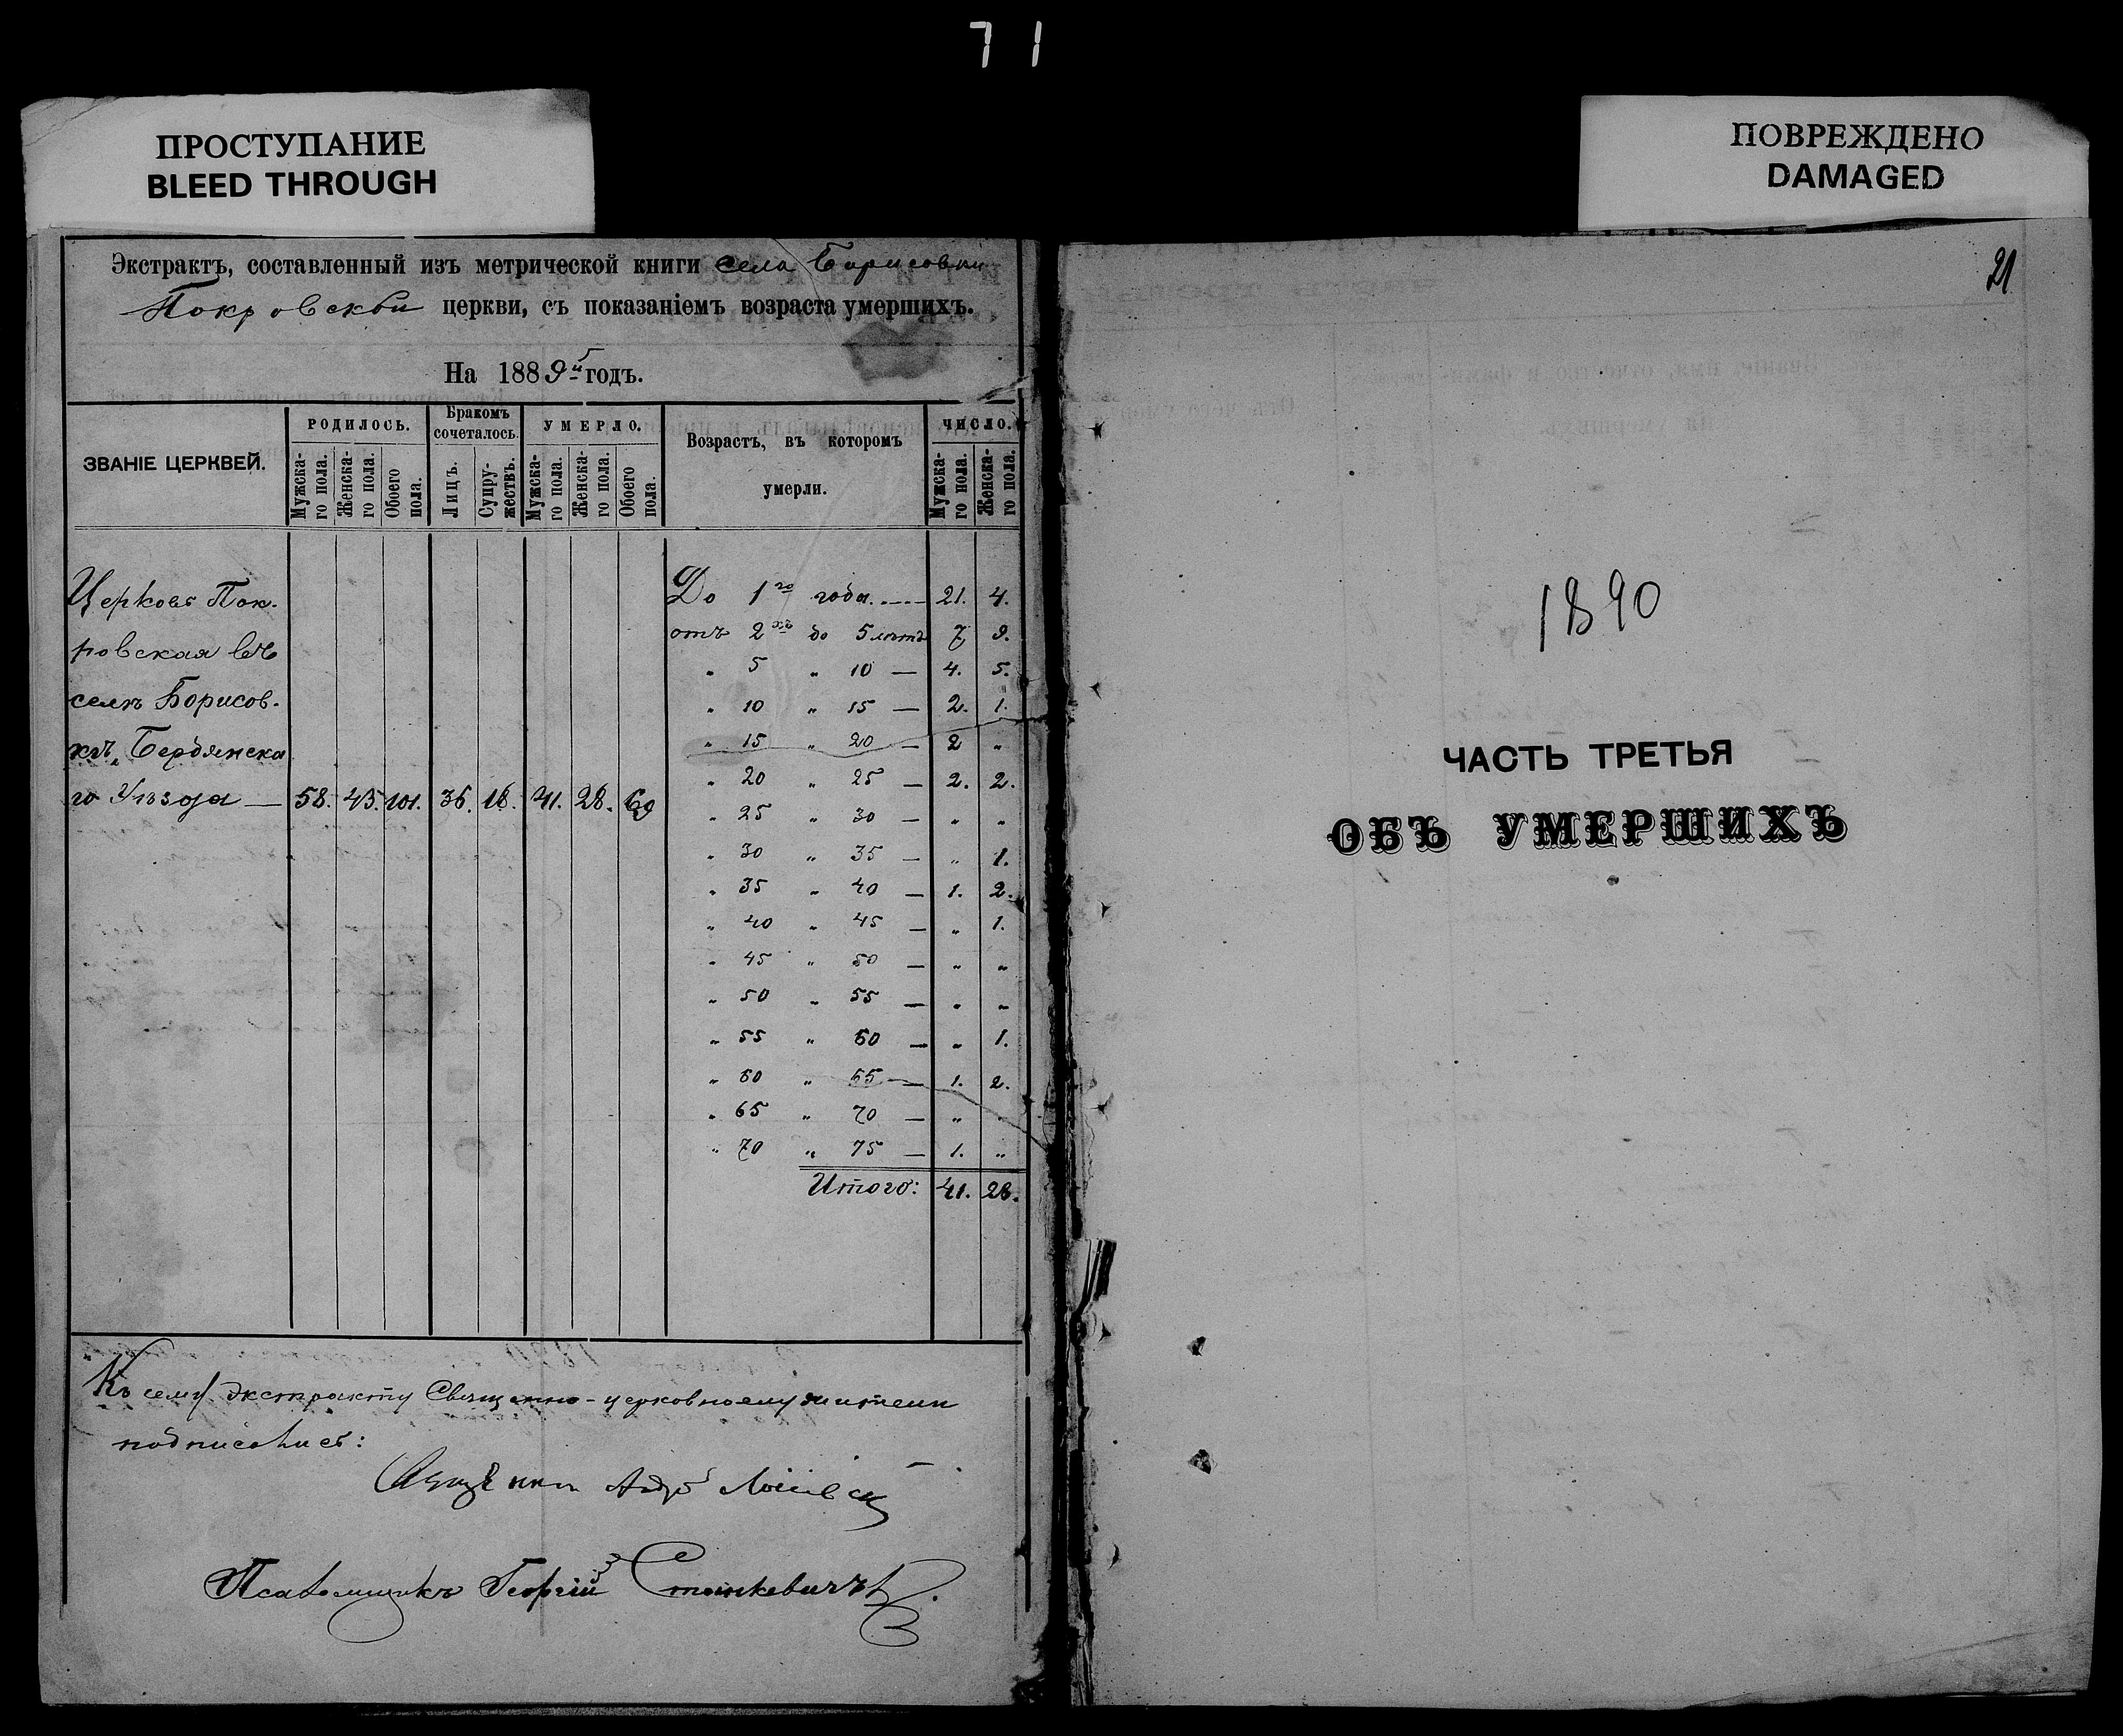 71
ПРОСТУПАНИЕ
BLEED THROUGH
ПОВРЕЖДЕНО
DAMAGED
Экстрактъ, составленный изъ метрической книги села Борисовки
Покровской церкви, съ показаніемъ возраста умершихъ.
На 1889й годъ.
ЗВАНІЕ ЦЕРКВЕЙ.
РОДИЛОСЬ.
Мужска-
го пола.
Женска-
го пола.
Обоего
пола.
Бракомъ
сочеталось.
Лицъ.
Супру-
жествъ.
УМЕРЛО.
Мужска-
го пола.
Женска-
го пола.
Обоего
пола.
Возрастъ, въ которомъ
умерли.
ЧИСЛО.
Мужска-
го пола.
Женска-
го пола.
Церковь Пок-
ровская въ
селѣ Борисов-
кѣ, Бердянска
го Уѣзда — 58. 43. 101. 36. 18. 41. 28. 69
До 1го года. 21. 4.
отъ 2хъ до 5 лѣтъ 7 9.
" 5 " 10 — 4. 5.
" 10 " 15 — 2. 1.
" 15 " 20 — 2 "
" 20 " 25 — 2. 2.
" 25 " 30 — " "
" 30 " 35 — " 1.
" 35 " 40 — 1. 2.
" 40 " 45 — " 1.
" 45 " 50 — " "
" 50 " 55 — " "
" 55 " 60 — " 1.
" 60 " 65 — 1. 2.
" 65 " 70 — " "
" 70 " 75 — 1. "
Итого: 41. 28.
Къ сему экстракту Священно-церковнослужители
подписались:
Священникъ
Псаломщикъ Георгій Станкевичъ.
21
1890
ЧАСТЬ ТРЕТЬЯ
ОБЪ УМЕРШИХЪ